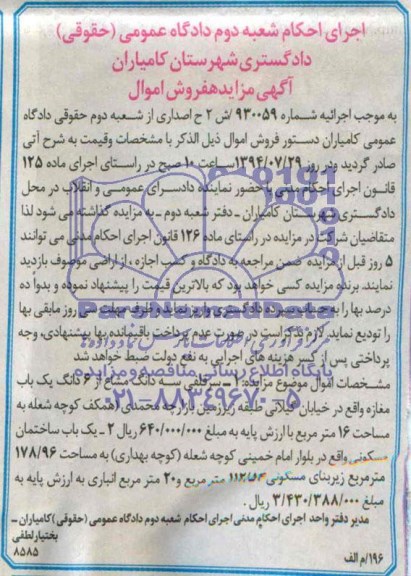 اجرای احکام شعبه دوم دادگاه عمومی (حقوقی)
دادگستری شهرستان کامیاران
آگهی مزایدهفروش اموال
به موجب اجرائیه شماره ۹۳۰۰۵۹/ش ۲ ح اصداری از شعبه دوم حقوقی دادگاه
عمومی کامیاران دستور فروش اموال ذیل الذکر با مشخصات وقیمت به شرح آتی
صادر گردید ودر روز ۱۳۹۴/۰۷/۲۹ساعت ۱۰ صبح در راستای اجرای ماده ۱۲۵
قانون اجرای احکام مدنی با حضور نماینده دادسرای عمومی و انقلاب در محل
دادگستری شهرستان کامیاران ـ دفتر شعبه دوم ـ به مزایده گذاشته می شود لذا
متقاضیان شرکت در مزایده در راستای ماده ۱۲۶ قانون اجرای احکام مدنی می توانند
۵ روز قبل از مزایده ضمن مراجعه به دادگاه و کسب اجازه ، از اراضی موصوف بازدید
نمایند. برنده مزایده کسی خواهد بود که بالاترین قیمت را پیشنهاد نموده و بدواً ده
درصد بها را به حساب سپرده دادگستری واریز نماید و ظرف مهلت سی روز مابقی بها
را تودیع نماید. لازم بذکر است در صورت عدم پرداخت باقیمانده بها پیشنهادی، وجه
پرداختی پس از کسر هزینه های اجرایی به نفع دولت ضبط خواهد شد
مشخصات اموال موضوع مزایده: ۱ ـ سرقفلی سه دانگ مشاع از ۶ دانگ یک باب
مغازه واقع در خیابان گیلانی طبقه زیرزمین بازارچه محمدی (همکف کوچه شعله به
مساحت ۱۶ متر مربع با ارزش پایه به مبلغ ۶۴۰/۰۰۰/۰۰۰ ریال ۲ ـ یک باب ساختمان
مسکونی واقع در بلوار امام خمینی کوچه شعله (کوچه بهداری) به مساحت ۱۷۸/۹۶
مترمربع زیربنای مسکونی ۱۱۲/۵۴ متر مربع و۲۰ متر مربع انباری به ارزش پایه به
مبلغ ۳/۴۳۰/۳۸۸/۰۰۰ ریال.
مدیر دفتر واحد اجرای احکام مدنی اجرای احکام شعبه دوم دادگاه عمومی (حقوقی)کامیاران ـ
بختیار لطفی
۱۹۶/م الف
۸۵۸۵
پایگاه اطلاع رسانی مناقصه و مزایده
۰۲۱-۸۸۳۴۹۶۷۰-۵